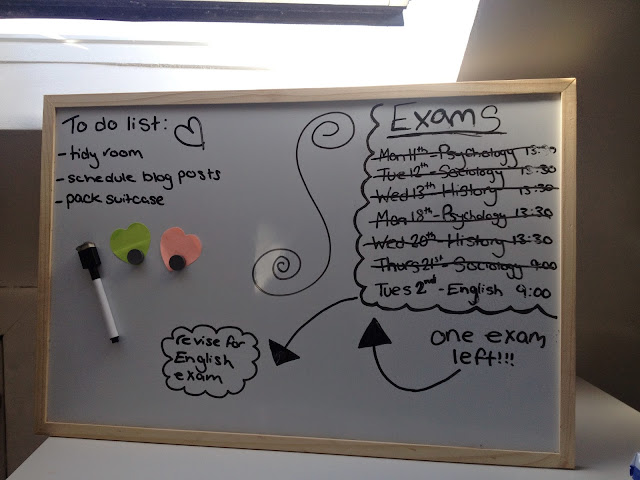 To do list:
- tidy room
- schedule blog posts
- pack suitcase
Exams
Mon 11th - Psychology 13:30
Tue 12th - Sociology 13:30
Wed 13th - History 13:30
Mon 18th - Psychology 13:30
Wed 20th - History 13:30
Thurs 21st - Sociology 9:00
Tues 2nd - English 9:00
revise for
English
exam
one exam
left!!!